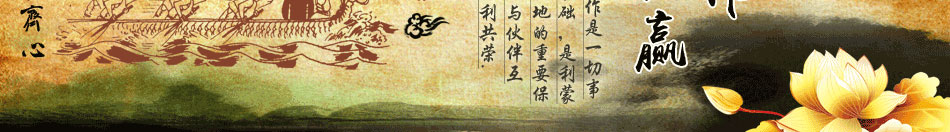 赢
作是一切事
础,是利蒙
地的重要保
与伙伴互
利共荣.
齊心